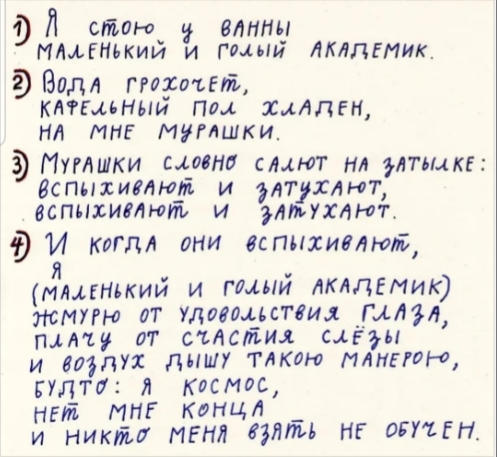 1) Я стою у ванны
маленький и голый академик.
2) Вода грохочет,
кафельный пол хладен,
на мне мурашки.
3) Мурашки словно салют на затылке:
вспыхивают и затухают,
вспыхивают и затухают.
4) И когда они вспыхивают,
я
(маленький и голый академик)
жмурю от удовольствия глаза,
плачу от счастия слёзы
и воздух дышу такою манерою,
будто: я космос,
нет мне конца
и никто меня взять не обучен.